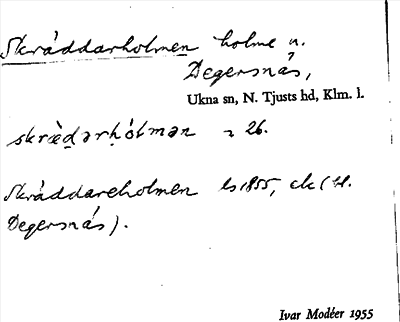 Skräddarholmen holme n.
Degersnäs,
Ukna sn, N. Tjusts hd, Klm. l.
skræ̀ḍərḥólmən 26.
Skräddareholmen ls 1855, ek (t.
Degersnäs).
Ivar Modéer 1955